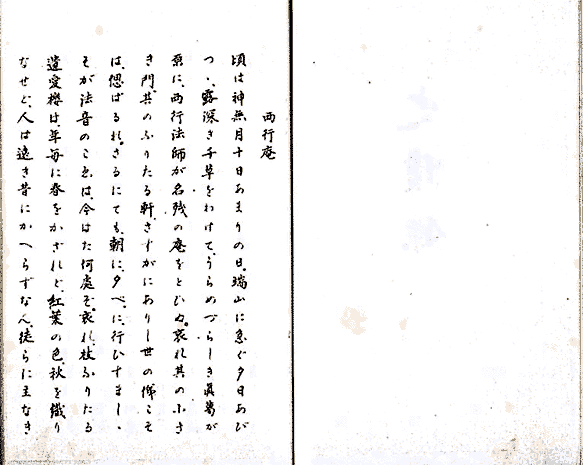 西行庵
頃は神無月十日あまりの日。端山に急ぐ夕日あび
つゝ、露深き千草をわけて、うらめづらしき眞葛が
原に、西行法師が名残の庵をとひぬ。哀れ其の小さ
き門、其のふりたる軒、さすがにありし世の俤こそ
は、偲ばるれ。さるにても、朝に、夕べに、行ひすましゝ
そが法音のこゑは、今はた何處ぞ。哀れ、枝ふりたる
遺愛櫻は、年毎に春をかざれど、紅葉の色、秋を織り
なせど、人は遠き昔にかへらずなん。徒らに主なき